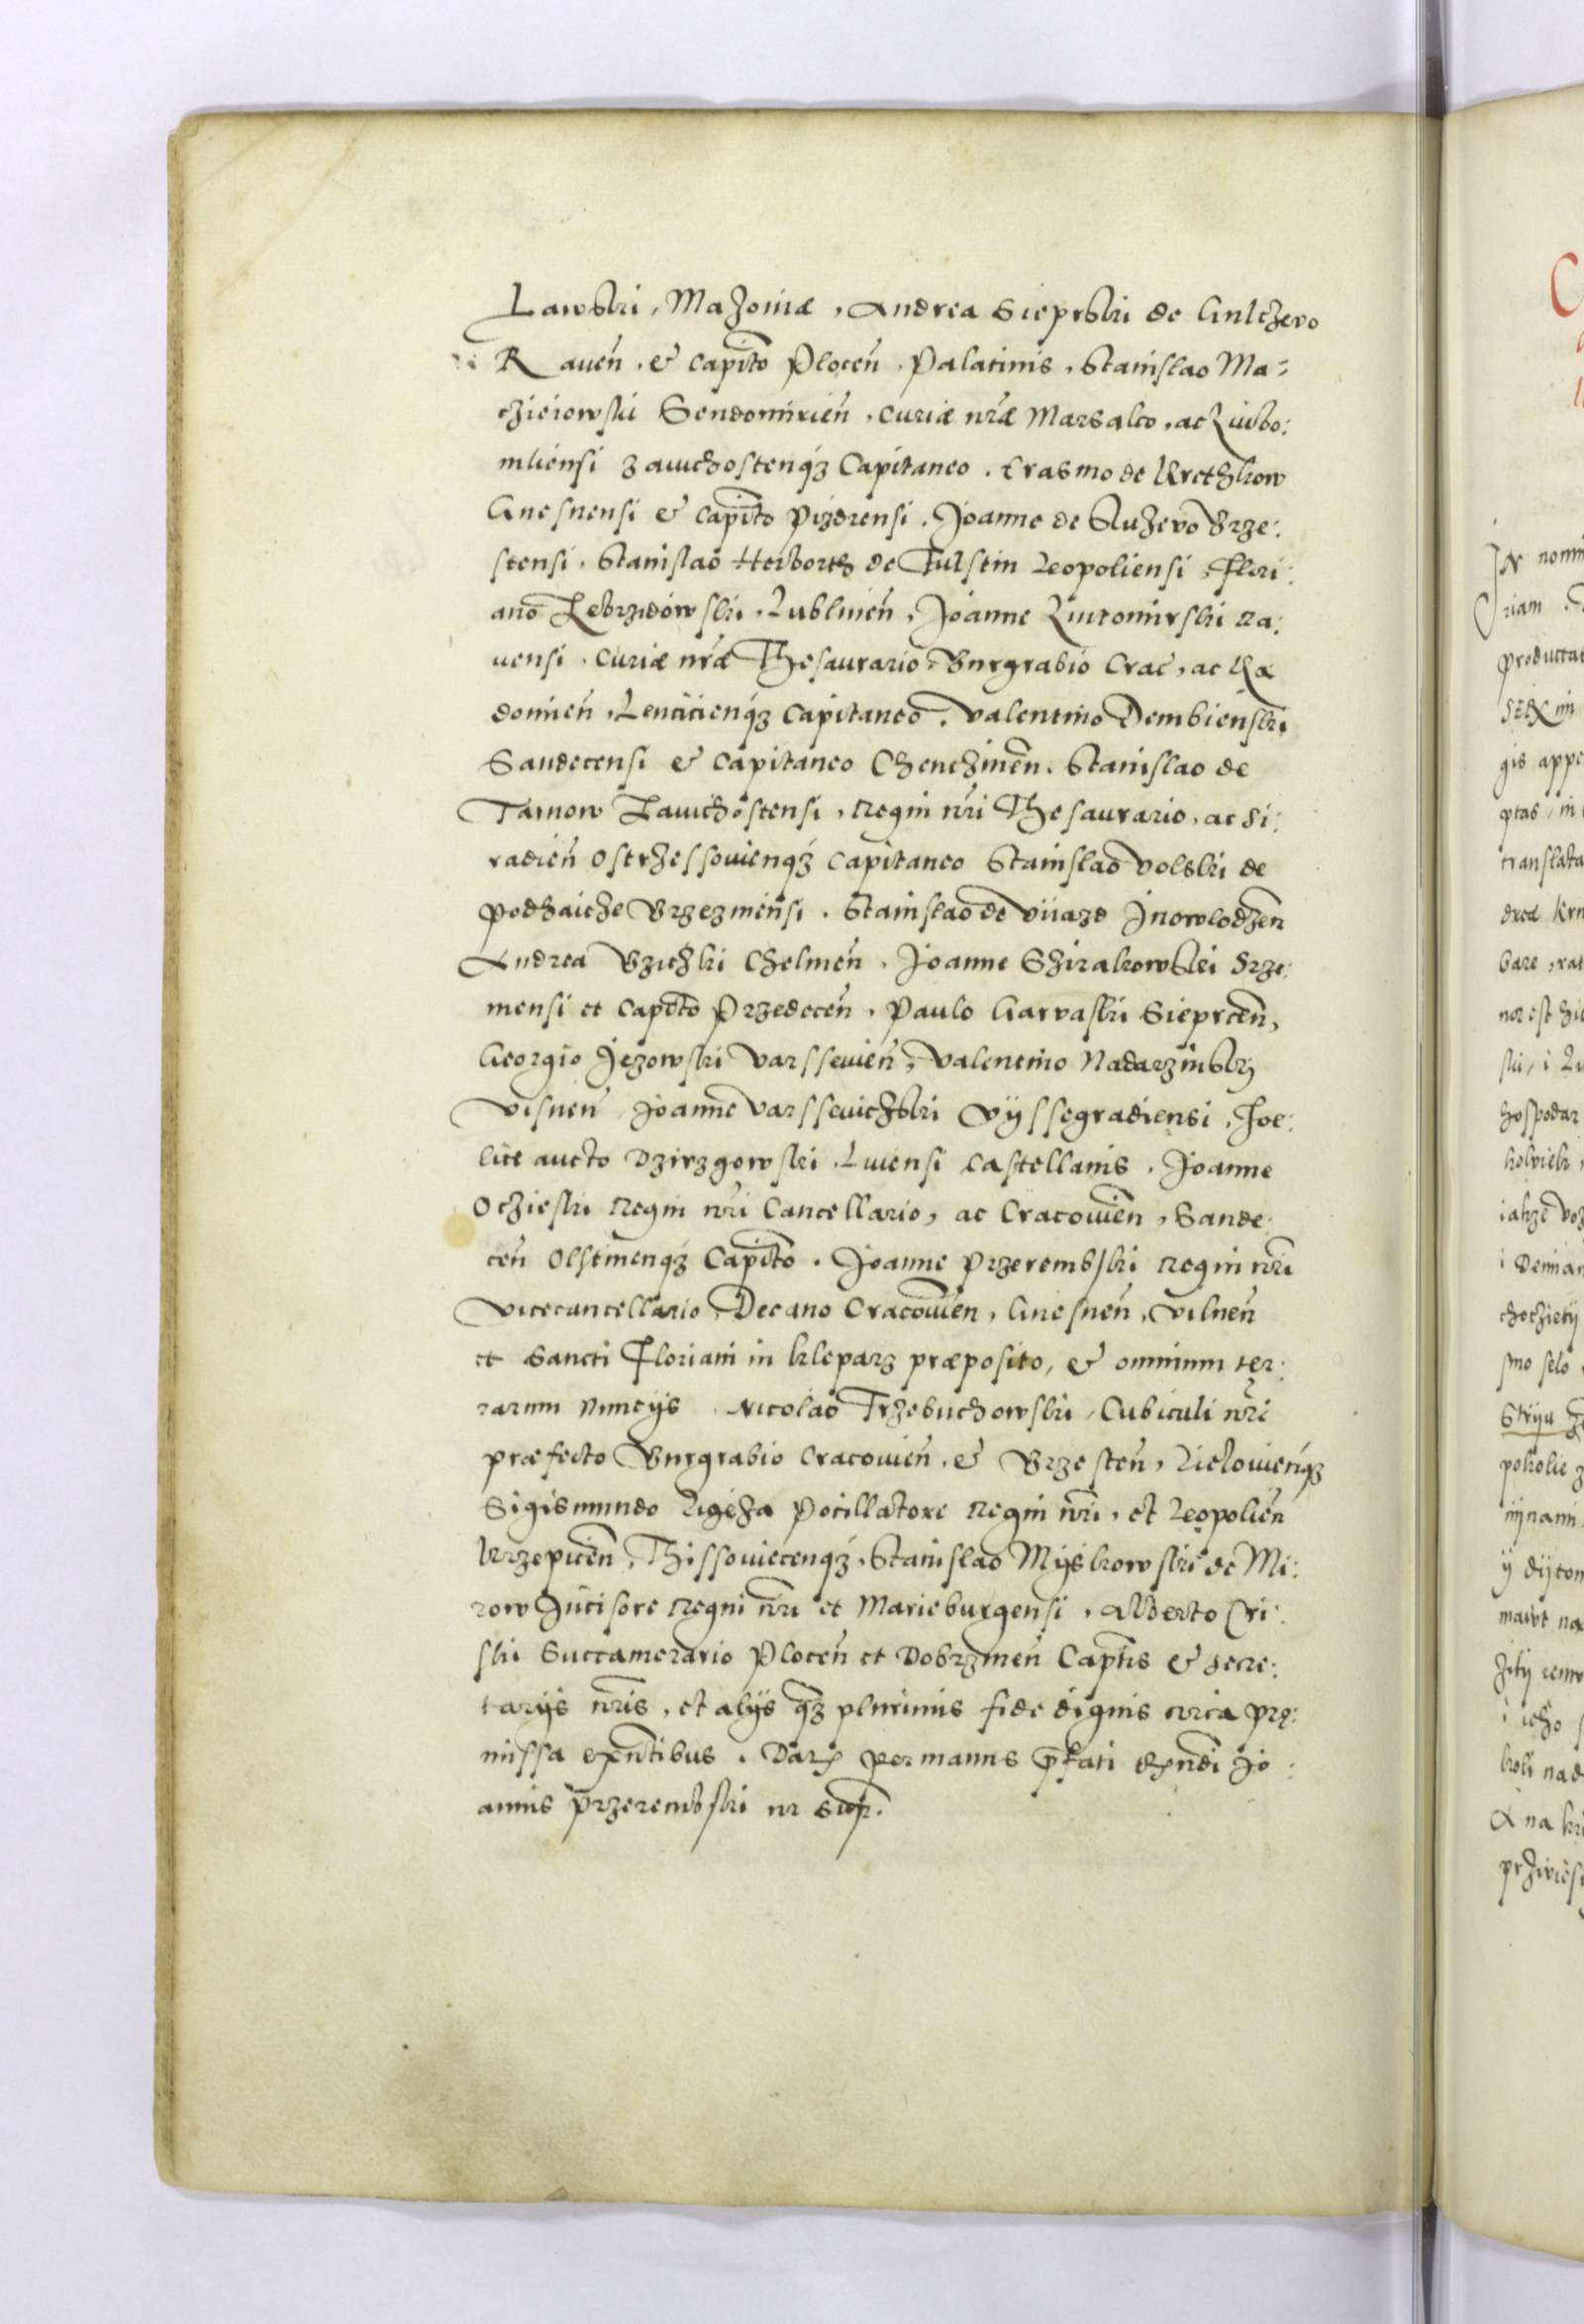 Lawski, Mazoviæ, Andrea Sieprski de Gulczevo
Raveñ. & Capito Ploceñ. Palatinis, Stanislao Ma=
czieiowski Sendomirieñ, Curiæ nræ Marsalco, ac Liubo:
mliensi Zawichostenqz Capitaneo. Erasmo de Krethkow
Gnesnensi & Capito Pizdrensi. Joanne de Sluzevo Brze:
stensi. Stanislao Herborth de Fulstin Leopoliensi, Flori:
ano Zebrzidowski. Lublineñ, Joanne Lutomirski Ra:
vensi. Curiæ nræ Thesaurario, Burgrabio Crac, ac Ra
domieñ, Lencicienqz Capitaneo. Valentino Dembienski
Sandecensi & Capitaneo Chenczineñ. Stanislao de
Tarnow Zawichostensi, Regni nri Thesaurario, ac Si:
radieñ Ostrzessovienqz Capitaneo Stanislao Volski de
Podhaicze Brzezinensi. Stanislao de Uiiazd Inowlodzeñ
Andrea Bziczki Chelmeñ. Joanne Szirakowski Brze:
mensi et Capito Przedeceñ, Paulo Garvaski Sieprceñ,
Georgio Jezowski Varsseuieñ, Valentino Nadarzinskÿ
Visneñ Joanne Varsseuiczski Vÿssegradiensi, Foe:
lice aucto Dzirzgowski Livensi Castellanis. Joanne
Oczieski Regni nri Cancellario, ac Cracovieñ, Sande:
ceñ Olstinenqz Capito. Joanne Przerembski Regni nri
Vicecancellario, Decano Cracovieñ, Gnesneñ, Vilneñ
et Sancti Floriani in Kleparz præposito, & omnium ter:
rarum Nuncÿs Nicolao Trzebuchowski, Cubiculi nri
præfecto Burgrabio Cracovieñ. & Brzesteñ, Lielovienqz
Sigismundo Ligeza Pocillatore Regni nri, et Leopolieñ
Krzepiceñ, Thissoviecenqz, Stanislao Mÿskowski de Mi:
row Incisore Regni nri et Marieburgensi, Alberto Cri:
ski Succamerario Ploceñ et Dobrzineñ Captis & Secre:
tarÿs nris, et alÿs qz plurimis fide dignis circa prę:
missa exntibus. Dat per manus pfati Rndi Jo:
annis Przerembski ut supr.